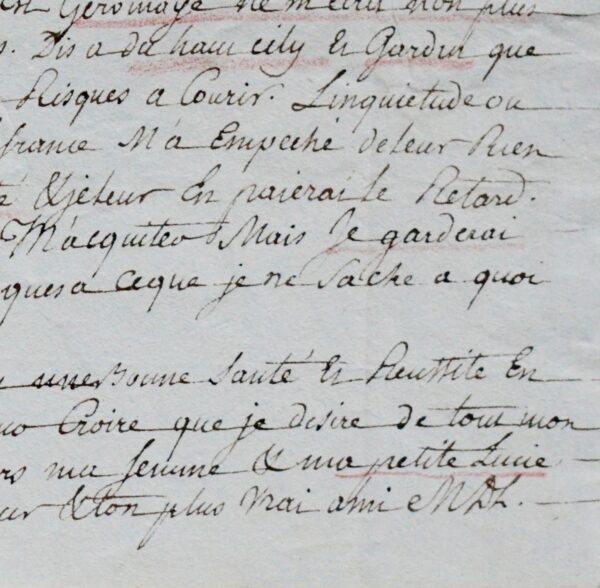 Geromaye ne m'ecrit non plus
s. Dis a da haut cily Et Gardin que
Risques a Courir. Linquietude ou
france M'a Empeché deleur Rien
té & je leur En paierai le Retard.
M'acquiter Mais Je garderai
ques a ceque je ne sache a quoi
une Bonne Santé Et Reussite En
Croire que je desire de tout mon
rs ma femme & ma petite Lucie
ur & ton plus vrai ami